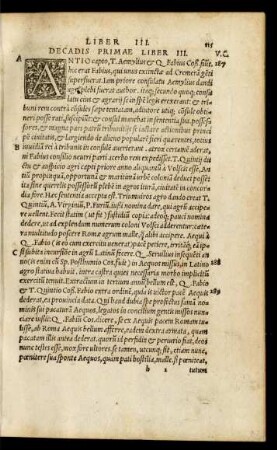 LIBER III.
115
DECADIS PRIMAE LIBER III.
V.C.
ANTIO capto, T. Aemylius & Q. Fabius Coss. fiũt.
287
hic erat Fabius, qui unus extinctæ ad Cremerā gẽti
superfuerat. Iam priore consulatu Aemylius dandi
agri plebi fuerat author. itaq; secundo quoq; consu
latu eius & agrarij se in spẽ legis erexerant: & tri
buni rem contra consules sæpe tentatam, adiutore utiq; cōsule obti-
neri posse rati, suscipiũt: & consul manebat in sententia sua. possessores
fores, & magna pars patrũ tribunitijs se iactare actionibus princi
pẽ ciuitatis, & largiendo de alieno popularẽ fieri querentes, totius
A
inuidiam rei à tribunis in consulẽ auerterant. atrox certamẽ aderat,
ni Fabius consilio neutri parti acerbo rem expedisset. T. Quintij du
ctu & auspicio agri captũ priore anno aliquantũ à Volscis esse. An
tium propinquā, opportunā & maritimā urbẽ coloniā deduci posse:
ita sine querelis possessorũ plebẽ in agros iturā, ciuitatẽ in concor
dia fore. Hæc sententia accepta est. Triumuiros agro dando creat T.
Quintiũ, A. Virginiũ, P. Furiũ. iussi nomina dare, qui agrũ accipere
uellent. Fecit statim (ut fit) fastidiũ copia: adeoq; pauci nomina
dedere, ut ad explendum numerum coloni Volsci adderentur. cetera mu
ltitudo poscere Romæ agrum malle, q̃ alibi accipere. Aequi à
B
Q. Fabio (is eò cum exercitu uenerat) pacẽ petiere, irritāq; eā ipsi
subita incursione in agrũ Latinũ fecere. Q. Seruilius insequẽti an
no (is enim cũ Sp. Posthumio Cos. fuit) in Aequos missus, in Latino
288
agro statiua habuit. intra castra quies necessaria morbo implicitũ
exercitũ tenuit. Extractum in tertium annũ bellum est, Q. Fabio
& T. Quintio Coss. Fabio extra ordinẽ, quia is uictor pacẽ Aequis
289
dederat, ea prouincia data. Qui haud dubia spe profectus famā no-
minis sui pacaturā Aequos, legatos in concilium gentis missos nun-
ciare iussit: Q. Fabiũ Cos. dicere, se ex Aequis pacem Romam tu-
lisse, ab Roma Aequis bellum afferre, eadem dextra armata, quam
pacatam illis antea dederat. quorũ id perfidia & periurio fiat, deos
nunc testes esse, mox fore ultores. se tamen, utcunq; sit, etiam nunc,
pœnitere sua sponte Aequos, quàm pati hostilia, malle. si pœniteat,
b 2
tutum